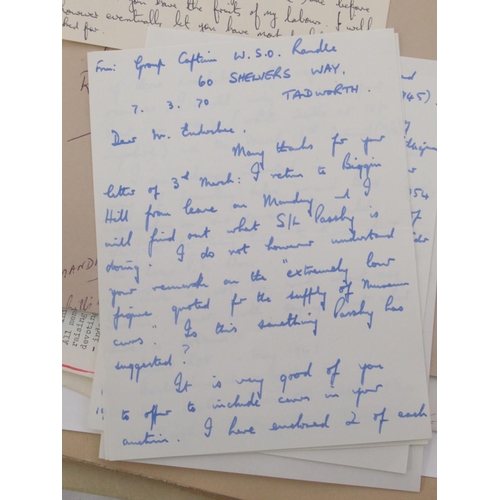 have the fruits of my labour. I will
however eventually let you have most
From: Group Captain W.S.O. Randle
60 SHELVERS WAY,
7. 3. 70 TADWORTH.
Dear Mr.
Many thanks for your
letter of 3rd March: I return to Biggin
Hill from leave on Monday and I
will find out what S/L Passby is
doing. I do not however understand
your remark on the "extremely low
figure quoted for the supply of Museum
covers". Is this something Passby has
suggested?
It is very good of you
to offer to include covers in your
auctions. I have enclosed 2 of each
945).
954
All
raising
devoting